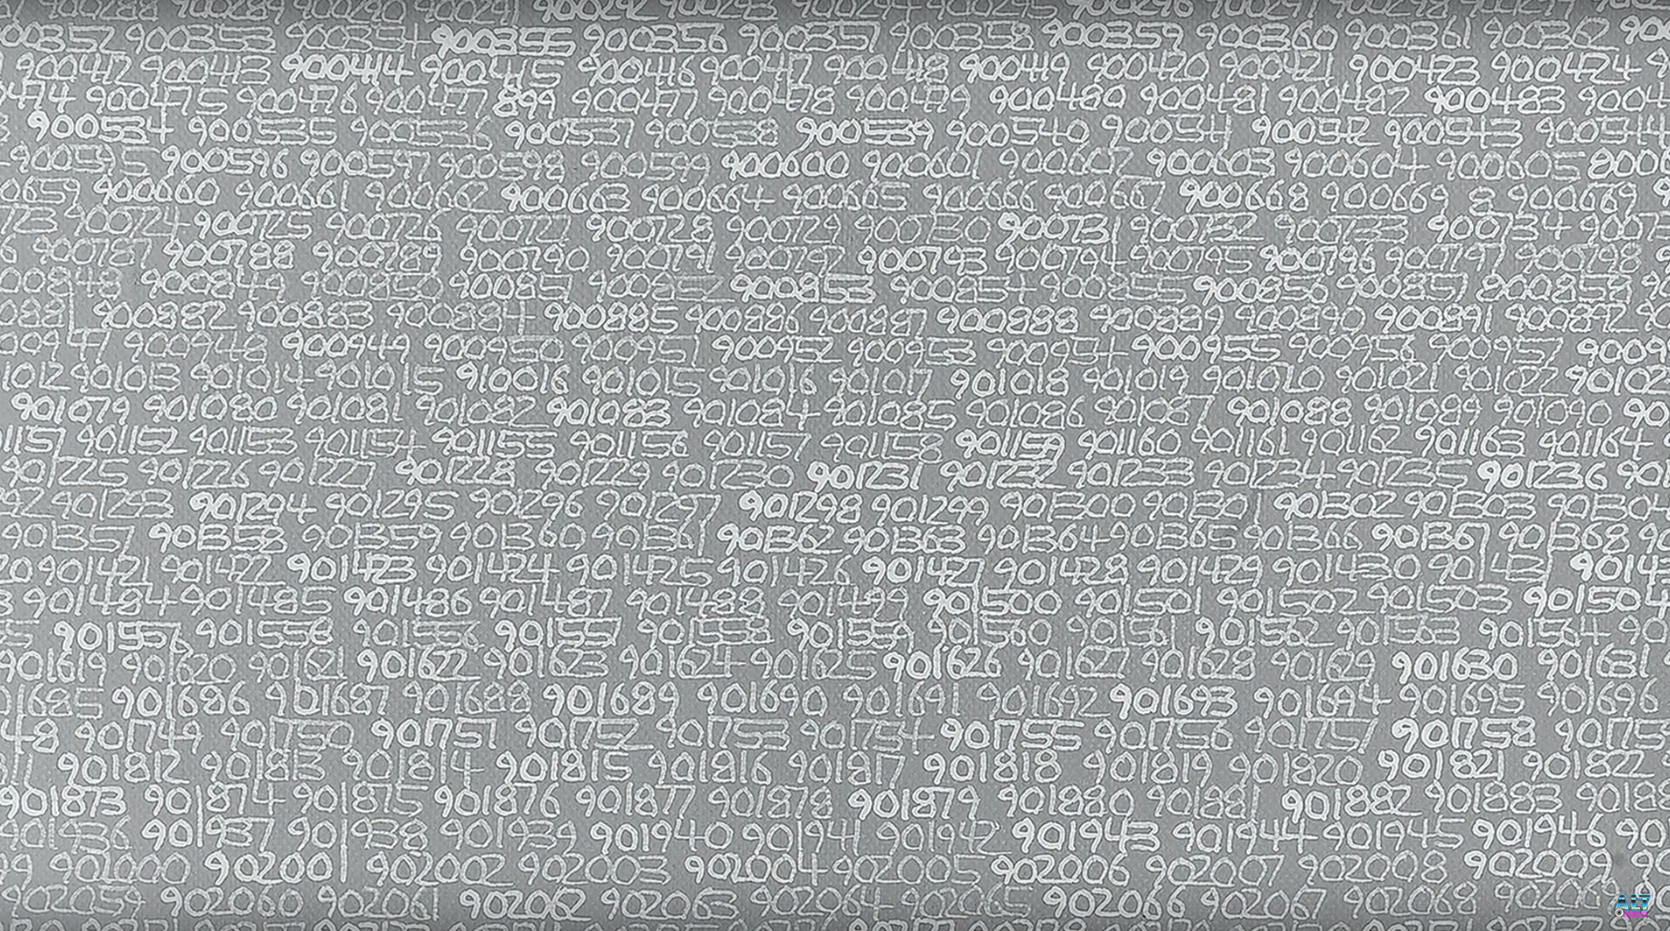 900292 900293
900353 900354 900355 900356 900357 900358 900359 900360 900361 900362
900412 900413 900414 900415 900416 900417 900418 900419 900420 900421 900423 900424
900475 900476 900477 899 900477 900478 900479 900480 900481 900482 900483
900534 900535 900536 900537 900538 900539 900540 900541 900542 900543 900544
900595 900596 900597 900598 900599 900600 900601 900602 900603 900604 900605
900660 900661 900662 900663 900664 900665 900666 900667 900668 900669 8 900669
900724 900725 900726 900727 900728 900729 900730 900731 900732 900733 900734
900787 900788 900789 900790 900791 900792 900793 900794 900795 900796 900797 900798
900849 900850 900851 900852 900853 900854 900855 900856 900857 900858
900882 900883 900884 900885 900886 900887 900888 900889 900890 900891 900892
900948 900949 900950 900951 900952 900953 900954 900955 900956 900957
901013 901014 901015 910016 901015 901016 901017 901018 901019 901020 901021 901022
901079 901080 901081 901082 901083 901084 901085 901086 901087 901088 901089 901090
901152 901153 901154 901155 901156 901157 901158 901159 901160 901161 901162 901163 901164
901225 901226 901227 901228 901229 901230 901231 901232 901233 901234 901235 901236
901293 901294 901295 901296 901297 901298 901299 901300 901301 901302 901303 901304
901357 901358 901359 901360 901361 901362 901363 901364 901365 901366 901367 901368
901421 901422 901423 901424 901425 901426 901427 901428 901429 901430 901431
901484 901485 901486 901487 901488 901499 901500 901501 901502 901503 901504
901556 901556 901557 901558 901559 901560 901561 901562 901563 901564
901619 901620 901621 901622 901623 901624 901625 901626 901627 901628 901629 901630 901631
901686 901687 901688 901689 901690 901691 901692 901693 901694 901695 901696
901749 901750 901751 901752 901753 901754 901755 901756 901757 901758
901812 901813 901814 901815 901816 901817 901818 901819 901820 901821 901822
901873 901874 901875 901876 901877 901878 901879 901880 901881 901882 901883
901936 901937 901938 901939 901940 901941 901942 901943 901944 901945 901946
902000 902001 902002 902003 902004 902005 902006 902007 902008 902009
902059 902060 902061 902062 902063 902064 902065 902066 902067 902068 902069